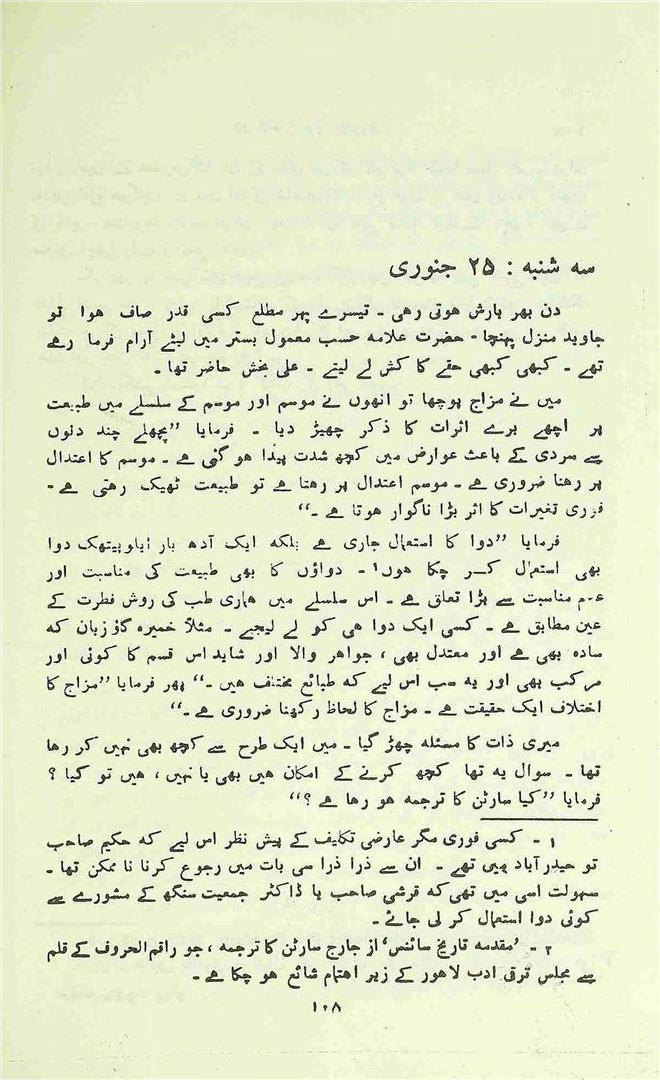 سه شنبه : ۲۵ جنوری
دن بھر بارش ہوتی رہی ۔ تیسرے پہر مطلع کسی قدر صاف ہوا تو
جاوید منزل پہنچا ۔ حضرت علامہ حسب معمول بستر میں لیٹے آرام فرما رہے
تھے ۔ کبھی کبھی حقے کا کش لے لیتے ۔ علی بخش حاضر تھا ۔
میں نے مزاج پوچھا تو انھوں نے موسم اور موسم کے سلسلے میں طبیعت
پر اچھے برے اثرات کا ذکر چھیڑ دیا ۔ فرمایا ”پچھلے چند دنوں
سے سردی کے باعث عوارض میں کچھ شدت پیدا ہو گئی ہے ۔ موسم کا اعتدال
پر رھنا ضروری ہے ۔ موسم اعتدال پر رھتا ہے تو طبیعت ٹھیک رھتی ہے ۔
فوری تغیرات کا اثر بڑا ناگوار ہوتا ہے ۔“
فرمایا ”دوا کا استعمال جاری ہے بلکہ ایک آدھ بار ایلوپیتھک دوا
بھی استعمال کر چکا ہوں۱ ۔ دواؤں کا بھی طبیعت کی مناسبت اور
عدم مناسبت سے بڑا تعلق ہے ۔ اس سلسلے میں ہماری طب کی روش فطرت کے
عین مطابق ہے ۔ کسی ایک دوا ہی کو لے لیجیے ۔ مثلاً خمیرہ گاؤ زبان کہ
سادہ بھی ہے اور معتدل بھی ، جواہر والا اور شاید اس قسم کا کوئی اور
مرکب بھی اور یہ سب اس لیے کہ طبائع مختلف ہیں ۔“ پھر فرمایا ”مزاج کا
اختلاف ایک حقیقت ہے ۔ مزاج کا لحاظ رکھنا ضروری ہے ۔“
میری ذات کا مسئلہ چھڑ گیا ۔ میں ایک طرح سے کچھ بھی نہیں کر رہا
تھا ۔ سوال یہ تھا کچھ کرنے کے امکان ہیں بھی یا نہیں ، ہیں تو کیا ؟
فرمایا ”کیا سارٹن کا ترجمہ ہو رہا ہے ؟“
۱ ۔ کسی فوری مگر عارضی تکلیف کے پیش نظر اس لیے کہ حکیم صاحب
تو حیدر آباد میں تھے ۔ ان سے ذرا ذرا سی بات میں رجوع کرنا نا ممکن تھا ۔
سہولت اسی میں تھی کہ قرشی صاحب یا ڈاکٹر جمعیت سنگھ کے مشورے سے
کوئی دوا استعمال کر لی جائے ۔
۲ ۔ ’مقدمہ تاریخ سائنس‘ از جارج سارٹن کا ترجمہ ، جو راقم الحروف کے قلم
سے مجلس ترقی ادب لاہور کے زیر اہتمام شائع ہو چکا ہے ۔
۱۰۸